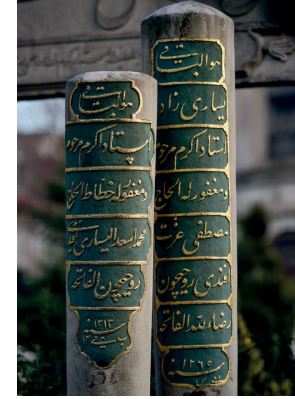 هو الباقی
یساری زاده
استاد اکرم مرحوم
و مغفور له الحاج
مصطفی عزت
افندی روحیچون
رضاء لله الفاتحه
سنه ١٢٦٥
هو الباقی
استاد اکرم مرحوم
و مغفور له خطاط الحاج
محمد اسعد الیساری افندی
روحیچون الفاتحه
سنه ١٢١٣